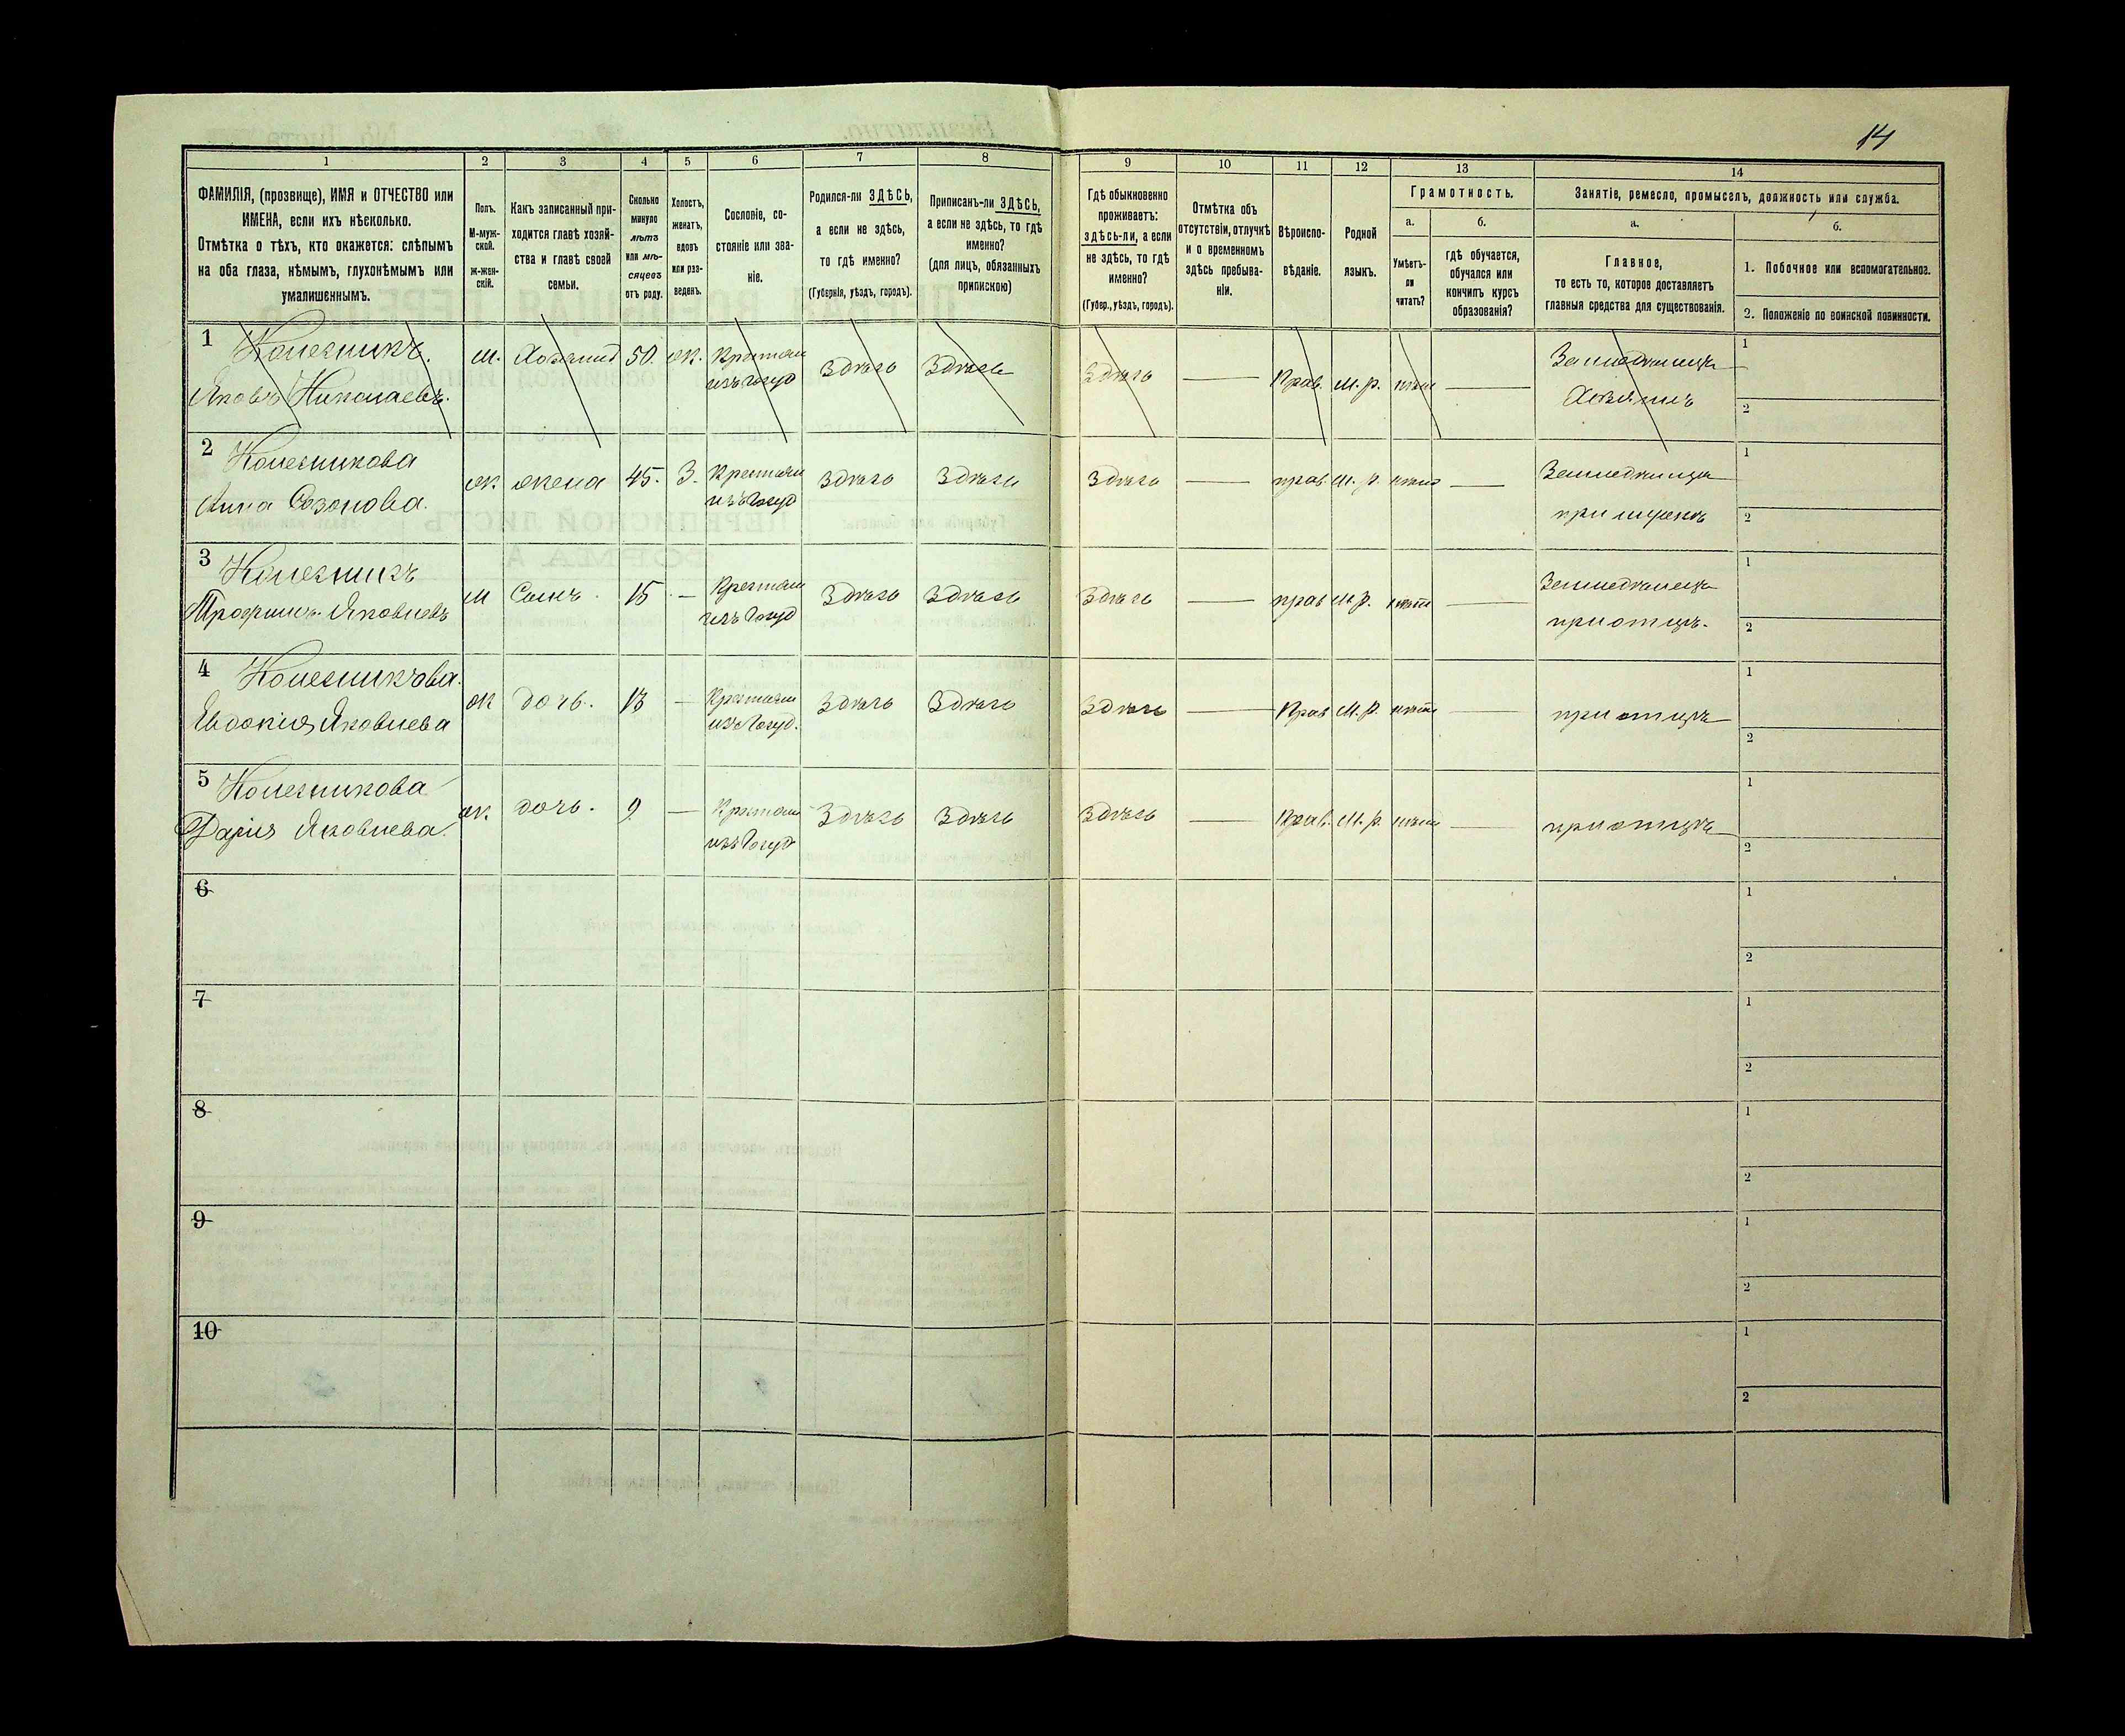 14
1 2 3 4 5 6 7 8 9 10 11 12 13 14
ФАМИЛІЯ, (прозвище), ИМЯ и ОТЧЕСТВО или
ИМЕНА, если ихъ нѣсколько.
Отмѣтка о тѣхъ, кто окажется: слѣпымъ
на оба глаза, нѣмымъ, глухонѣмымъ или
умалишеннымъ.
Полъ.
М-муж-
ской.
ж-жен-
скій.
Какъ записанный при-
ходится главѣ хозяй-
ства и главѣ своей
семьи.
Сколько
минуло
лѣтъ
или мѣ-
сяцевъ
отъ роду.
Холостъ,
женатъ,
вдовъ
или раз-
веденъ.
Сословіе, со-
стояніе или зва-
ніе.
Родился-ли ЗДѢСЬ,
а если не здѣсь,
то гдѣ именно?
(Губернія, уѣздъ, городъ).
Приписанъ-ли ЗДѢСЬ,
а если не здѣсь, то гдѣ
именно?
(для лицъ, обязанныхъ
припискою)
Гдѣ обыкновенно
проживаетъ:
здѣсь-ли, а если
не здѣсь, то гдѣ
именно?
(Губер., уѣздъ, городъ).
Отмѣтка объ
отсутствіи, отлучкѣ
и о временномъ
здѣсь пребыва-
ніи.
Вѣроиспо-
вѣданіе.
Родной
языкъ.
Грамотность.
а.
Умѣетъ-
ли
читать?
б.
гдѣ обучается,
обучался или
кончилъ курсъ
образованія?
Занятіе, ремесло, промыселъ, должность или служба.
а.
Главное,
то есть то, которое доставляетъ
главныя средства для существованія.
б.
1. Побочное или вспомогательное.
2. Положеніе по воинской повинности.
1 Колесникъ. м. 50. ж. Здѣсь Здѣсь Здѣсь — Прав. м.р. — 1
Яковъ Николаевъ. Хозяинъ 2
2 Колесникова ж жена 45. З. Здѣсь Здѣсь Здѣсь — прав. м.р. — 1
Анна Созонова. при мужѣ 2
3 Колесникъ м Сынъ. 15 — Здѣсь Здѣсь Здѣсь — прав м.р. — 1
Трофимъ Яковлевъ при отцѣ. 2
4 Колесникова. ж дочь. 13 — Здѣсь Здѣсь Здѣсь — Прав м.р. — 1
Евдокія Яковлева при отцѣ 2
5 Колесникова ж дочь. 9 — Здѣсь Здѣсь Здѣсь — Прав. м.р. — 1
Дарія Яковлева. при отцѣ 2
6 1
2
7 1
2
8 1
2
9 1
2
10 1
2